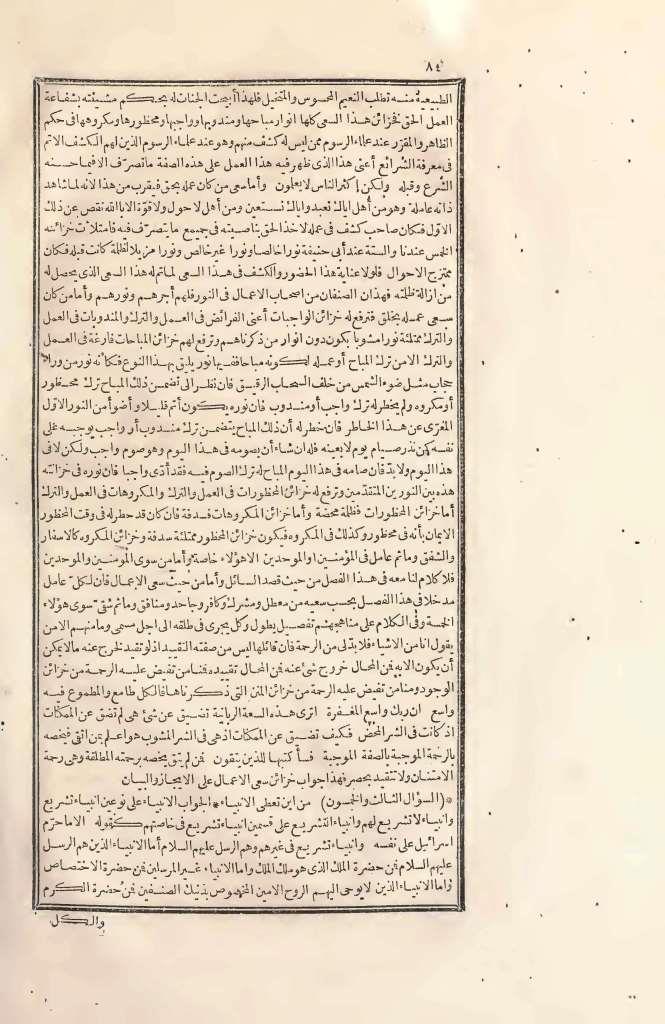 ٨٤
الطبيعية منه تطلب النعيم المحسوس والمتخيل فلهذا أبيحت الجنات له بحكم مشيئته بشفاعة
العمل الحق فخزائن هذا السعى كلها أنوار مباحها ومندوبها وواجبها ومحظورها ومكروهها فى حكم
الظاهر والمقرر عند علماء الرسوم ممن ليس له كشف منهم وهو عند علماء الرسوم الذين لهم الكشف الاتم
فى معرفة الشرائع أعنى هذا الذى ظهر فيه هذا العمل على هذه الصفة ما تصرّف الا فيما حسنه
الشرع وقبله ولكن أكثر الناس لا يعلمون وأما سعى من كان عمله بحق فيقرب من هذا لانه لما شاهد
ذاته عاملة وهو من أهل اياك نعبد واياك نستعين ومن أهل لا حول ولا قوّة الا بالله نقص عن ذلك
الاول فكان صاحب كشف فى عمله لاخذ الحق بناصيته فى جميع ما يتصرّف فيه فامتلأت خزائنه
الخمس عندنا والستة عند أبى حنيفة نورا خالصا ونورا غير خالص ونورا مزيلا لظلمة كانت قبله فكان
ممتزج الاحوال فلولا عناية هذا الحضور والكشف فى هذا السعى لما تم له هذا السعى الذى يحصل له
من ازالة ظلمته فهذان الصنفان من اصحاب الاعمال فى النور فلهم أجرهم ونورهم وأما من كان
سعى عمله بخلق فترفع له خزائن الواجبات أعنى الفرائض فى العمل والترك والمندوبات فى العمل
والترك ممتلئة نورا مشوبا يكون دون انوار من ذكرناهم وترفع لهم خزائن المباحات فارغة فى العمل
والترك الا من ترك المباح أو عمله لكونه مباحا ففيها نور يليق بهذا النوع فكأنه نور من وراء
حجاب مثل ضوء الشمس من خلف السحاب الرقيق فان نظر الى تضمن ذلك المباح ترك محظور
أو مكروه ولم يخطر له ترك واجب أو مندوب فان نوره يكون أتم قليلا وأضوأ من النور الاول
المعرّى عن هذا الخاطر فان خطر له أن ذلك المباح يتضمن ترك مندوب أو واجب يوجبه على
نفسه كمن نذر صيام يوم لا بعينه فله ان شاء أن يصومه فى هذا اليوم وهو صوم واجب ولكن لا فى
هذا اليوم ولا بدّ فان صامه فى هذا اليوم المباح له ترك الصوم فيه فقد أدّى واجبا فان نوره فى خزانته
هذه بين النورين المتقدّمين وترفع له خزائن المحظورات فى العمل والترك والمكروهات فى العمل والترك
أما خزائن المحظورات فظلمة محضة وأما خزائن المكروهات فسدفة فان كان قد حطر له فى وقت المحظور
الايمان بأنه فى محظور وكذلك فى المكروه فيكون خزائن المحظور ممتلئة سدفة وخزائن المكروه كالاسفار
والشفق وما تم عامل فى المؤمنين او الموحدين الا هؤلاء خاصة وأما من سوى المؤمنين والموحدين
فلا كلام لنا معه فى هذا الفصل من حيث قصد السائل وأما من حيث سعى الاعمال فان لكل عامل
مدخلا فى هذا الفصل بحسب سعيه من معطل ومشرك وكافر وجاحد ومنافق وما ثم شقىّ سوى هؤلاء
الخمسة وفى الكلام على مناهجهم تفصيل يطول وكل يجرى فى طلقه الى اجل مسمى وما منهم الا من
يقول انا من الاشياء فلا بدّ لى من الرحمة فان قائلها ليس من صفته التقييد اذ لو تقيد لخرج عنه ما لا يمكن
أن يكون الا به فن المحال خروج شئ عنه فن المحال تقييده فنا من تفيض عليه الرحمة من خزائن
الوجود ومنا من تفيض عليه الرحمة من خزائن المنن التى ذكرناها فالكل طامع والمطموع فيه
واسع ان ربك واسع المغفرة اترى هذه السعة الربانية تضيق عن شئ هى لم تضق عن الممكنات
اذ كانت فى الشر المحض فكيف تضيق عن الممكنات اذ هى فى الشر المشوب هو اعلم بمن اتقى فيخصه
بالرحمة الموجبة بالصفة الموجبة فسأكتبها للذين يتقون فمن لم يتق يخصه برحمته المطلقة وهى رحمة
الامتنان ولا تتقيد بحصر فهذا جواب خزائن سعى الاعمال على الايجاز والبيان
* (السؤال الثالث والخمسون) من اين تعطى الانبياء * الجواب الانبياء على نوعين انبياء تشريع
وانبياء لا تشريع لهم وانبياء التشريع على قسمين انبياء تشريع فى خاصتهم كقوله الا ما حرّم
اسرائيل على نفسه وانبياء تشريع فى غيرهم وهم الرسل عليهم السلام أما الانبياء الذين هم الرسل
عليهم السلام فن حضرة الملك الذى هو ملك الملك واما الانبياء غير المرسلين فن حضرة الاختصاص
واما الانبياء الذين لا يوحى اليهم الروح الامين المخصوص بذينك الصنفين فن حضرة الكرم
والكل